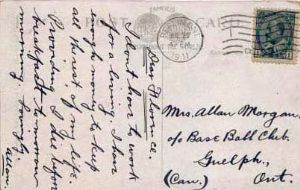 POST CARD
1911
Dear Florence.
I dont have to work
for a living. I have
enough money to keep
me all the rest of my life.
Providing I die before
breakfast to-morrow
morning
Allan.
Mrs. Allan Morgan.
c/o Base Ball Club.
Guelph,
(Can.) Ont.